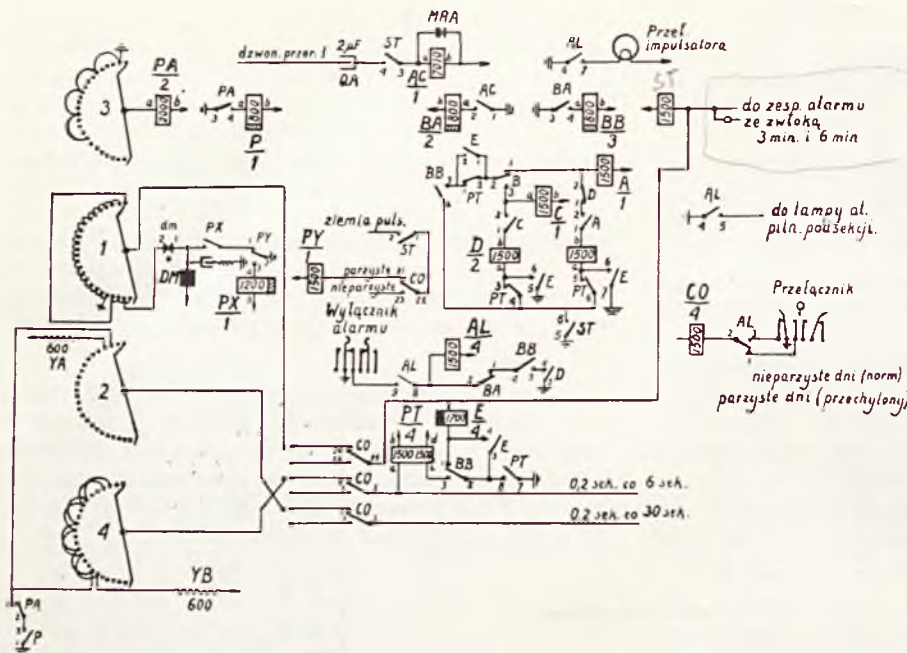 MRA
dzwon. przer. 1
2μF
QA
ST
4 3
a 7010 b
AC
1
AL
6 7
Przeł.
impulsatora
3
PA
2
a 200 b
PA
3 4
a 800 b
P
1
BA
2
a 800 b
AC
2 1
BA
3 4
a 800 b
BB
3
ST
1500
do zesp. alarmu
ze zwłoką
3 min. i 6 min
E
BB
PT
B
1500
A
1
a 1500 b
C
1
D
C
A
D
2
1500
1500
PT
E
PT
E
AL
4 5
do lampy al.
piln. podsekcji.
1
dm
2 1
PX
PY
DM
1200
PX
1
ziemia puls.
ST
PY
1
1500
parzyste 21
nieparzyste
CO
23 22
Wyłącznik
alarmu
ST
AL
4
1500
AL
BA
BB
D
CO
4
1500
AL
Przełącznik
nieparzyste dni (norm)
parzyste dni (przechylony)
600
YA
2
PT
4
1500 1500
1700
E
4
E
BB
PT
CO
CO
CO
0,2 sek. co 6 sek.
0,2 sek. co 30 sek.
4
YB
600
PA
P